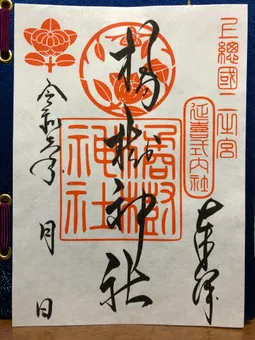 上總國二之宮
延喜式内社
奉拝
橘樹神社
橘樹神社
令和六年 月 日